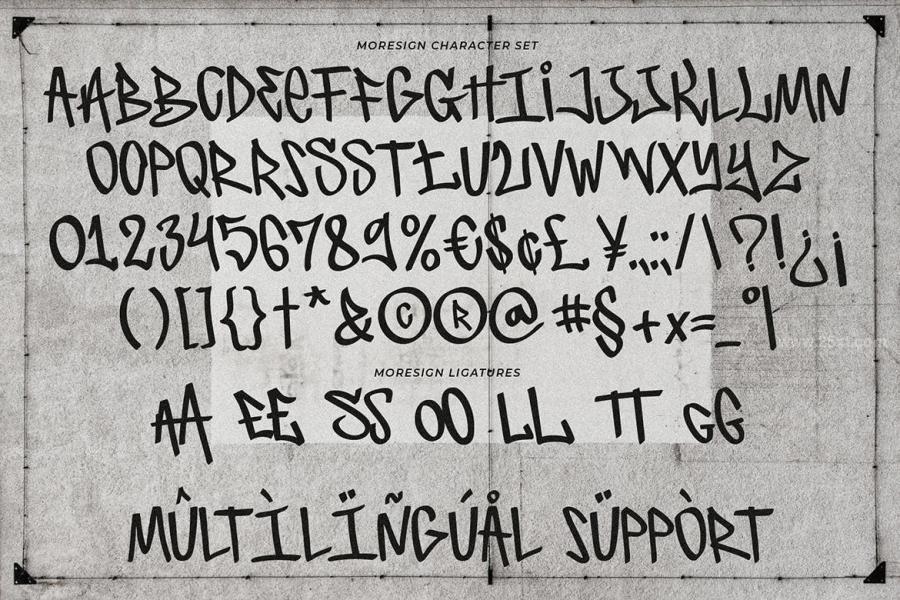 MORESIGN CHARACTER SET
AABBCDEeFFGGHIiJJJKLLMN
OOPQRRSSSTŁU2VWWXYYZ
0123456789%€$¢£ ¥.,:;/\?!¿¡
()[]{}†*&©®@ #§+x=_°|
MORESIGN LIGATURES
AA EE SS OO LL TT GG
MÛLTÌLÏÑGÚÅL SÜPPÒRT